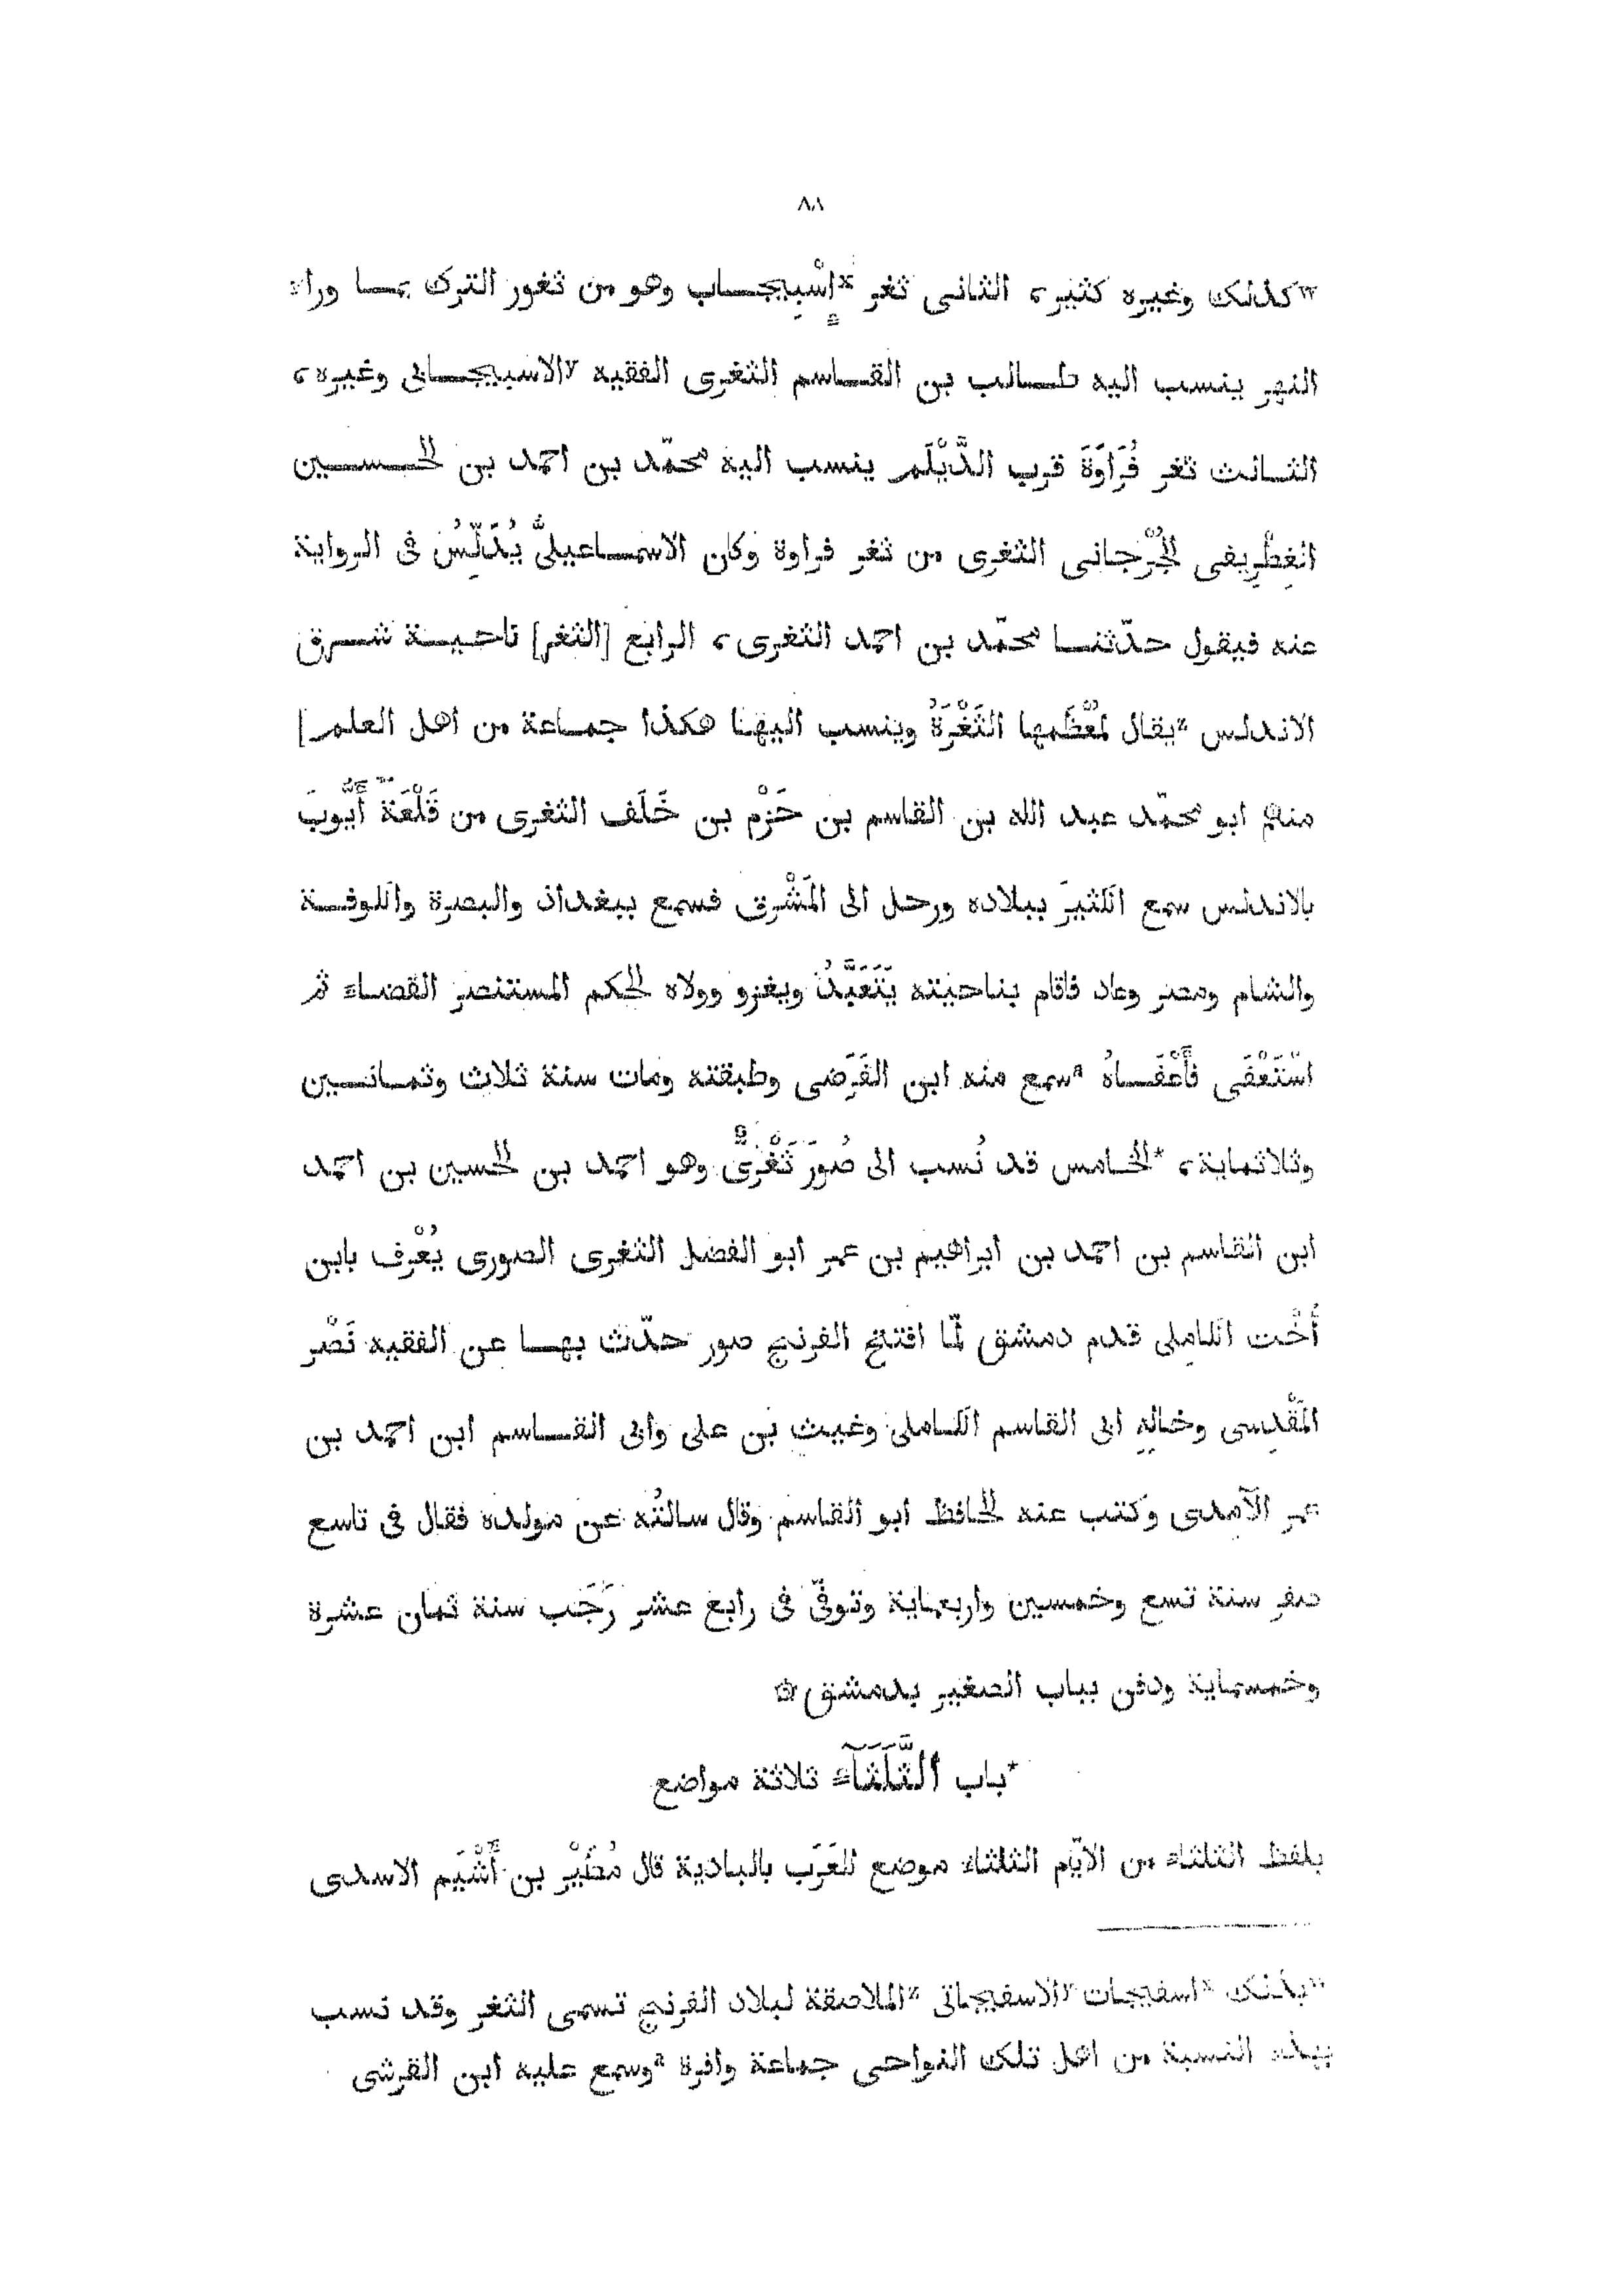 ٨٨
ʷكذلك وغيره كثير، الثانى ثغر ˣاِسْبِيجــاب وهو من ثغور الترك بمــا وراء
النهر ينسب اليه طــالب بن القــاسم الثغرى الفقيه ʸالاسبيجــابى وغيره،
الثــالث ثغر فُرَاوَةَ قرب الدَّيْلَم ينسب اليه محمّد بن احمد بن الحــسين
الغِطْرِيفى الجُرْجانى الثغرى من ثغر فراوة وكان الاسمــاعيلىُّ يُدَلِّسُ فى الرواية
عنه فيقول حدّثنــا محمّد بن احمد الثغرى، الرابع [الثغر] ناحيــة شــرق
الاندلس ᶻيقال لمُعْظَمها الثَغْرَةُ وينسب اليها هكذا جماعة من اهل العلم]
منهم ابو محمّد عبد الله بن القاسم بن حَزْم بن خَلَف الثغرى من قَلْعَة أَيُّوبَ
بالاندلس سمع الكثيرَ ببلاده ورحل الى المَشْرِق فسمع ببغداد والبصرة والكوفــة
والشام ومصر وعاد فاقام بناحيته يَتَعَبَّدُ ويغزو وولاه الحكم المستنصر القضاء ثم
اسْتَعْفَى فَأَعْفَــاهُ ᵃسمع منه ابن الفَرَضى وطبقته ومات سنة ثلاث وثمــانــين
وثلاثماية، *الخــامس قد نُسب الى صُورَ ثَغْرِىٌّ وهو احمد بن الحسين بن احمد
ابن القاسم بن احمد بن ابراهيم بن عمر ابو الفضل الثغرى الصورى يُعْرف بابن
أُخْت الكامِلى قدم دمشق لمّا افتتح الفرنج صور حدّث بهــا عن الفقيه نَصْر
المَقْدِسى وخالِهِ ابى القاسم الكــاملى وغيث بن على وابى القــاسم ابن احمد بن
عمر الآمدى وكتب عنه الحافظ ابو القاسم وقال سالتُه عن مولده فقال فى تاسع
صفر سنة تسع وخمسين واربعماية وتوفّى فى رابع عشر رَجَب سنة ثمان عشرة
وخمسماية ودفن بباب الصغير بدمشق ۞
*باب الثَّلَثَآء ثلاثة مواضع
بلفظ الثلثاء من الايّام الثلثاء موضع للعَرَب بالبادية قال مُطَيْر بن أَشْيَم الاسدى
ʷبذلك ˣاسفيجات ʸالاسفيجاتى ᶻالملاصقة لبلاد الفرنج تسمى الثغر وقد نسب
بهذه النسبة من اهل تلك النواحى جماعة وافرة ᵃوسمع عليه ابن القرشى